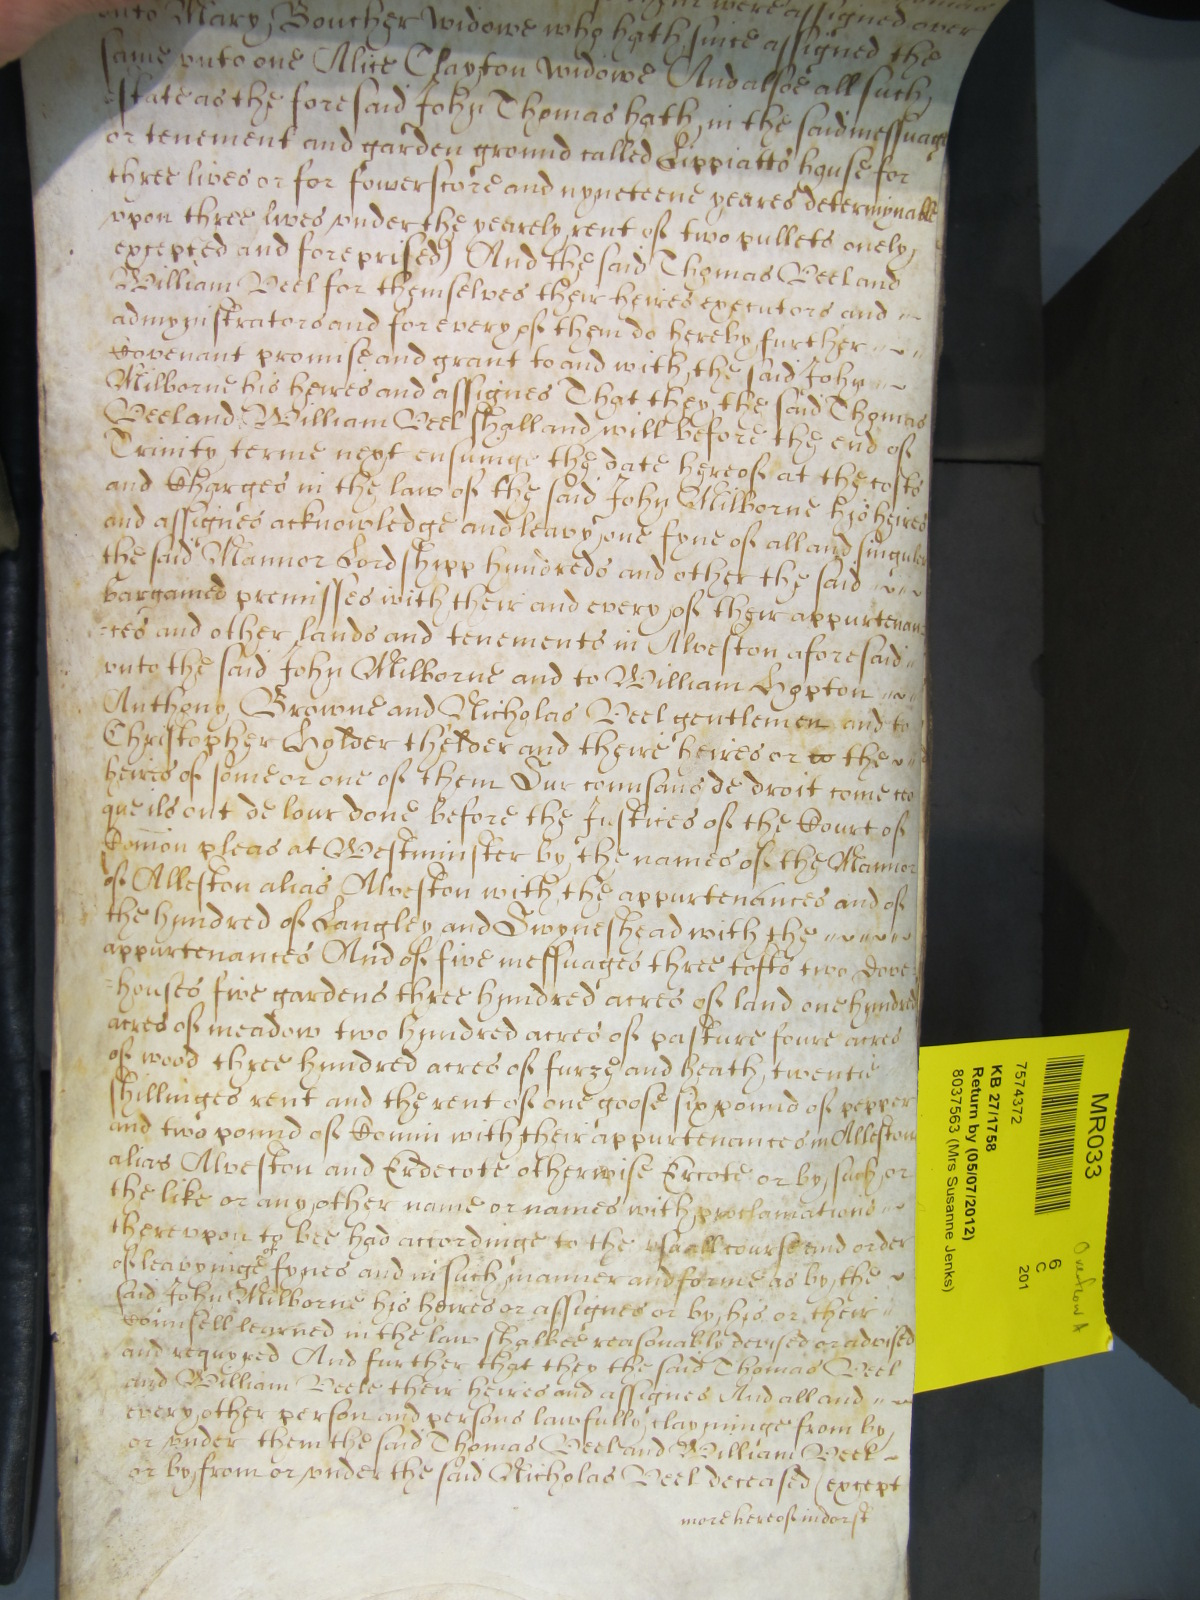 were assigned over
unto Mary Boucher widowe who hath since assigned the
same unto one Alice Clayton widowe And alsoe all such
estate as the foresaid John Thomas hath in the said messuage
or tenement and garden ground called Lippiatts house for
three lives or for fowerscore and nyneteene yeares determynable
upon three lives under the yearely rent of two pullets onely
excepted and foreprised) And the said Thomas Veel and
William Veel for themselves their heires executors and
admynistrators and for every of them do hereby further
Covenant promise and grant to and with the said John
Milborne his heires and assignes That they the said Thomas
Veel and William Veel shall and will before the end of
Trinity terme next ensuinge the date hereof at the costs
and Charges in the law of the said John Milborne his heires
and assignes acknowledge and leavy one fyne of all and singuler
the said Mannor Lordshipp hundreds and other the said
bargained premisses with their and every of their appurtenan
=ces and other lands and tenements in Alveston aforesaid
unto the said John Milborne and to William Hopton
Anthony Browne and Nicholas Veel gentlemen and to
Christopher Holder thelder and theire heires or to the
heires of some or one of them Sur conusans de droit come ceo
que ils ont de lour done before the Justices of the Court of
Com̄on pleas at Westminster by the names of the Mannor
of Alleston alias Alveston with the appurtenances and of
the hundred of Langley and Swyneshead with the
appurtenances And of five messuages three tofts two dove
=houses five gardens three hundred acres of land one hundred
acres of meadow two hundred acres of pasture foure acres
of wood three hundred acres of furze and heath twentie
shillinges rent and the rent of one goose six pound of pepper
and two pound of Comin with their appurtenances in Alleston
alias Alveston and Erdecote otherwise Ercote or by such or
the like or any other name or names with proclamations
thereupon to bee had accordinge to the usuall course and order
of leavyinge of fynes and in such manner and forme as by the
said John Milborne his heires or assignes or by his or their
Counsell learned in the law shalbee reasonably devised or advised
and requyred And further that they the said Thomas Veel
and William Veele their heires and assignes And all and
every other person and persons lawfully clayminge from by
or under them the said Thomas Veel and William Veel
or by from or under the said Nicholas Veel deceased (except
more hereof indorst
MR033
7574372
KB 27/1758
Return by (05/07/2012)
8037563 (Mrs Susanne Jenks)
6
C
201
Overflow A